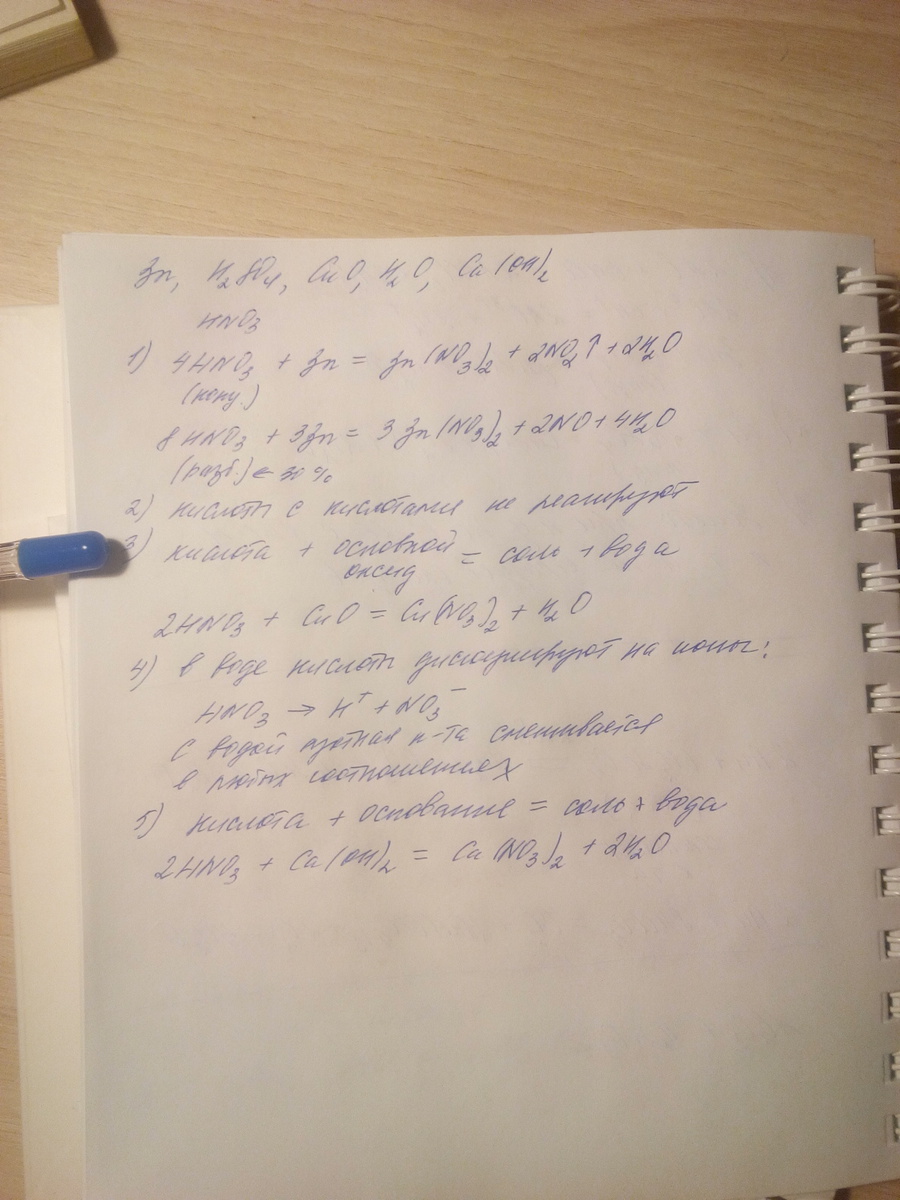 Zn, H₂SO₄, CuO, H₂O, Ca(OH)₂
HNO₃
1) 4HNO₃ + Zn = Zn(NO₃)₂ + 2NO₂↑ + 2H₂O
(конц.)
8HNO₃ + 3Zn = 3Zn(NO₃)₂ + 2NO + 4H₂O
(разб.) ← 30%
2) кислоты с кислотами не реагируют
3) кислота + основной оксид = соль + вода
2HNO₃ + CuO = Cu(NO₃)₂ + H₂O
4) в воде кислоты диссоциируют на ионы:
HNO₃ → H⁺ + NO₃⁻
с водой азотная к-та смешивается
в любых соотношениях
5) кислота + основание = соль + вода
2HNO₃ + Ca(OH)₂ = Ca(NO₃)₂ + 2H₂O